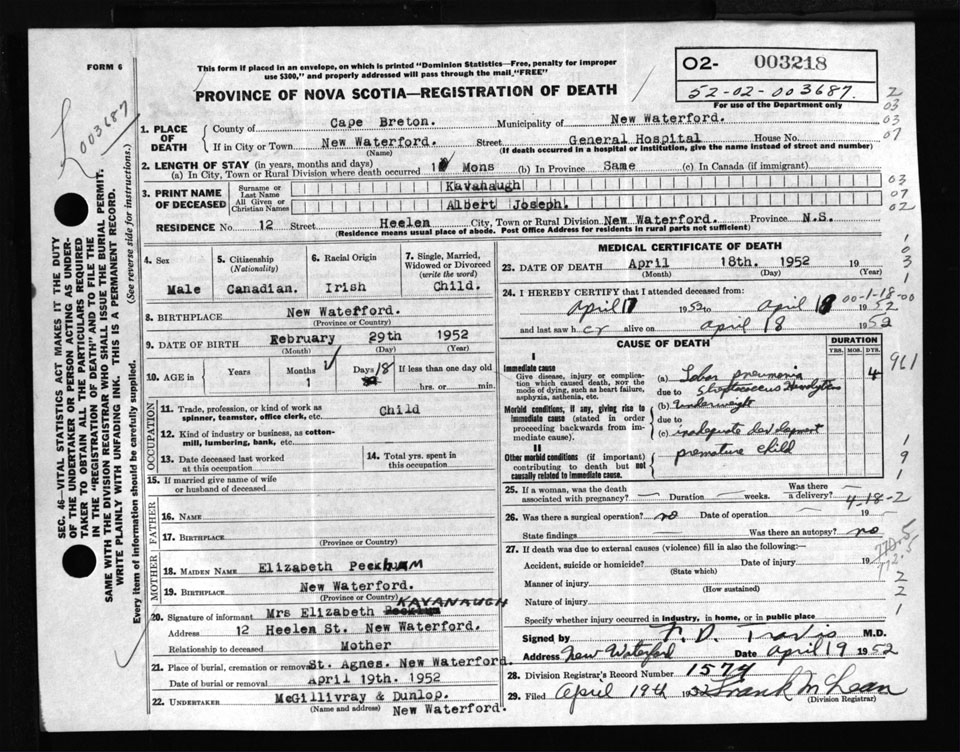 FORM 6
This form if placed in an envelope, on which is printed "Dominion Statistics—Free, penalty for improper
use $300," and properly addressed will pass through the mail "FREE"
PROVINCE OF NOVA SCOTIA—REGISTRATION OF DEATH
02- 003218
52-02-003687.
For use of the Department only
003687
1. PLACE OF DEATH
County of Cape Breton. Municipality of New Waterford.
If in City or Town New Waterford. Street General Hospital House No.
(Name) (If death occurred in a hospital or institution, give the name instead of street and number)
2. LENGTH OF STAY (in years, months and days)
(a) In City, Town or Rural Division where death occurred 1 Mons (b) In Province Same (c) In Canada (if immigrant)
3. PRINT NAME OF DECEASED
Surname or Last Name Kavahaugh
All Given or Christian Names Albert Joseph.
RESIDENCE No. 12 Street Heelen City, Town or Rural Division New Waterford. Province N.S.
(Residence means usual place of abode. Post Office Address for residents in rural parts not sufficient)
4. Sex
Male
5. Citizenship
(Nationality)
Canadian.
6. Racial Origin
Irish
7. Single, Married,
Widowed or Divorced
(write the word)
Child.
8. BIRTHPLACE New Waterford.
(Province or Country)
9. DATE OF BIRTH February 29th 1952
(Month) (Day) (Year)
10. AGE in Years Months 1 Days 18 If less than one day old
hrs. or min.
OCCUPATION
11. Trade, profession, or kind of work as
spinner, teamster, office clerk, etc. Child
12. Kind of industry or business, as cotton-
mill, lumbering, bank, etc.
13. Date deceased last worked
at this occupation
14. Total yrs. spent in
this occupation
15. If married give name of wife
or husband of deceased
FATHER
16. NAME
17. BIRTHPLACE
(Province or Country)
MOTHER
18. MAIDEN NAME Elizabeth PeckHAM
19. BIRTHPLACE New Waterford.
(Province or Country)
20. Signature of informant Mrs Elizabeth KAVANAUGH
Address 12 Heelen St. New Waterford.
Relationship to deceased Mother
21. Place of burial, cremation or removal St. Agnes. New Waterford.
Date of burial or removal April 19th. 1952
22. UNDERTAKER McGillivray & Dunlop.
(Name and address) New Waterford.
MEDICAL CERTIFICATE OF DEATH
23. DATE OF DEATH April 18th. 1952 19
(Month) (Day) (Year)
24. I HEREBY CERTIFY that I attended deceased from:
April 17 1952 to April 18 1952
00-1-18-00
and last saw h er alive on April 18 1952
CAUSE OF DEATH
DURATION
YRS. MOS. DYS.
I
Immediate cause
Give disease, injury or complica-
tion which caused death, not the
mode of dying, such as heart failure,
asphyxia, asthenia, etc.
(a) Lobar pneumonia 4
due to Streptococcus Hemolyticus
Morbid conditions, if any, giving rise to
immediate cause (stated in order
proceeding backwards from im-
mediate cause).
(b) Underweight
due to
(c) inadequate development
II
Other morbid conditions (if important)
contributing to death but not
causally related to immediate cause.
premature child
25. If a woman, was the death
associated with pregnancy? — Duration — weeks. Was there
a delivery? —
4-18-2
26. Was there a surgical operation? no Date of operation — 19 —
State findings — Was there an autopsy? no
27. If death was due to external causes (violence) fill in also the following:—
Accident, suicide or homicide? Date of injury 19
(State which)
Manner of injury
(How sustained)
Nature of injury
Specify whether injury occurred in industry, in home, or in public place
Signed by F. D. Travis M.D.
Address New Waterford Date April 19 1952
28. Division Registrar's Record Number 1574
29. Filed April 19th 1952 Frank McLean
(Division Registrar)
SEC. 46—VITAL STATISTICS ACT MAKES IT THE DUTY
OF THE UNDERTAKER OR PERSON ACTING AS UNDER-
TAKER TO OBTAIN ALL THE PARTICULARS REQUIRED
IN THE "REGISTRATION OF DEATH" AND TO FILE THE
SAME WITH THE DIVISION REGISTRAR WHO SHALL ISSUE THE BURIAL PERMIT.
WRITE PLAINLY WITH UNFADING INK. THIS IS A PERMANENT RECORD.
Every item of information should be carefully supplied. (See reverse side for instructions.)
2
03
03
07
03
07
02
1
0
3
1
961
1
9
1
2
2
1